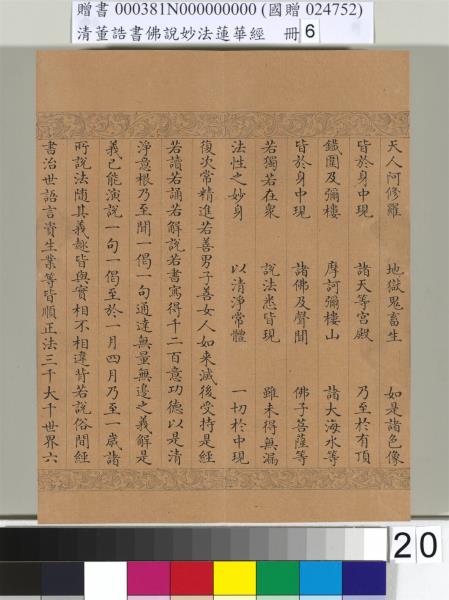 贈書 000381N000000000 (國贈 024752)
清董誥書佛說妙法蓮華經 冊 6
天人阿修羅 地獄鬼畜生 如是諸色像
皆於身中現 諸天等宮殿 乃至於有頂
鐵圍及彌樓 摩訶彌樓山 諸大海水等
皆於身中現 諸佛及聲聞 佛子菩薩等
若獨若在衆 說法悉皆現 雖未得無漏
法性之妙身 以清淨常體 一切於中現
復次常精進若善男子善女人如來滅後受持是經
若讀若誦若解說若書寫得千二百意功德以是清
淨意根乃至聞一偈一句通達無量無邊之義解是
義已能演說一句一偈至於一月四月乃至一歲諸
所說法隨其義趣皆與實相不相違背若說俗間經
書治世語言資生業等皆順正法三千大千世界六
20